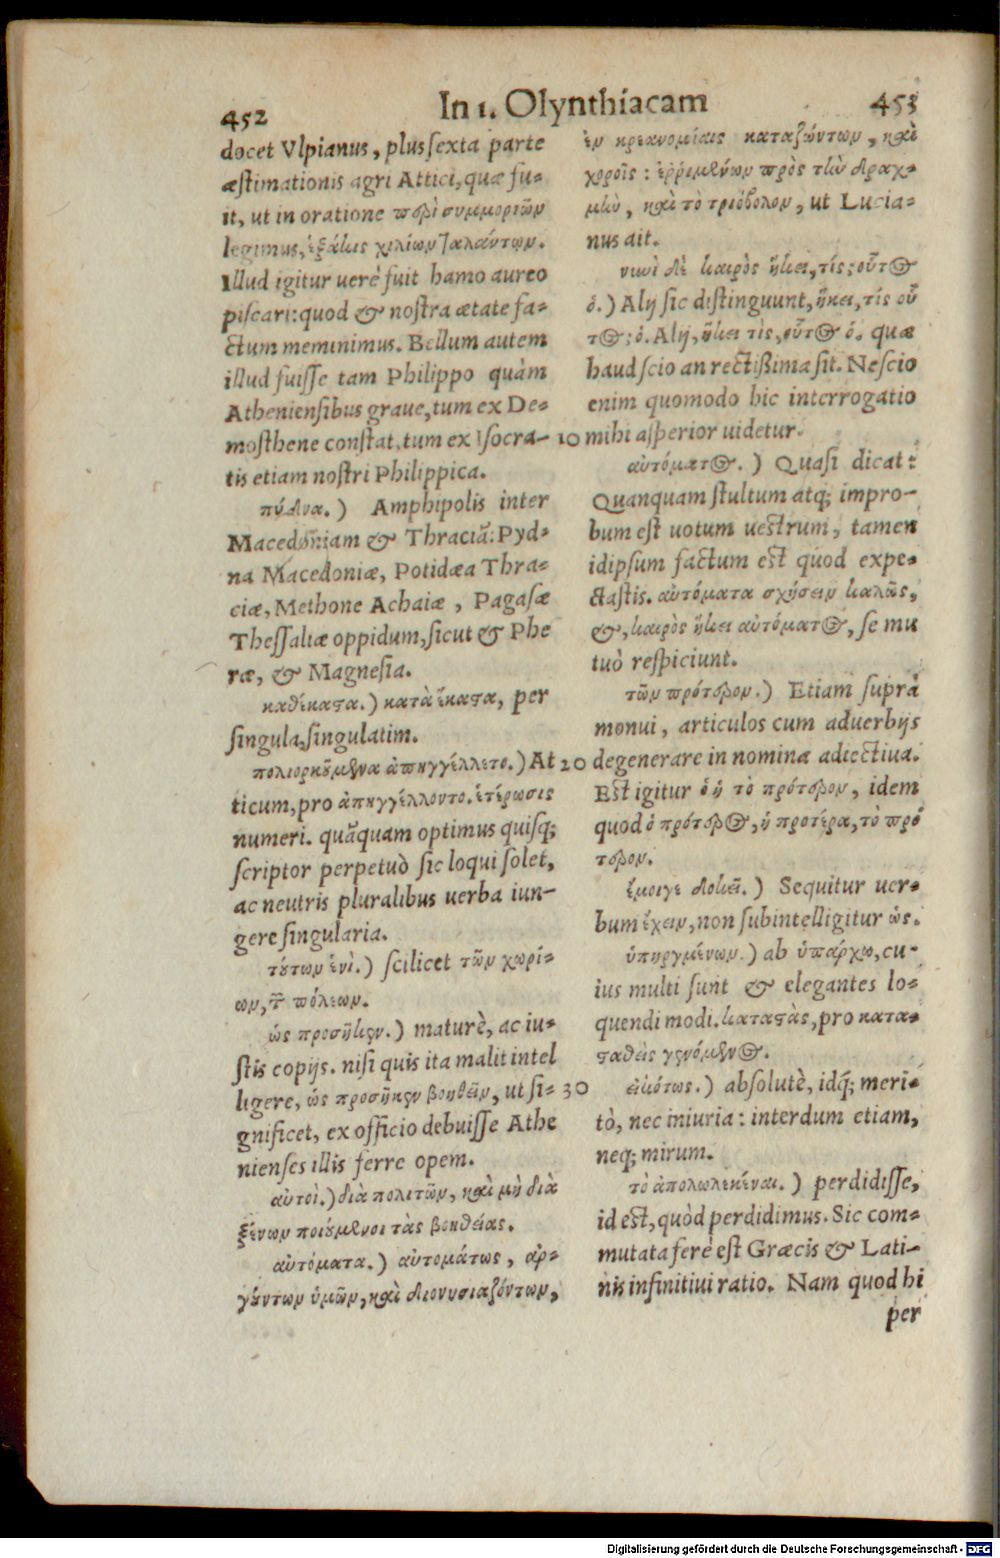 452
In 1. Olynthiacam
453
docet Vlpianus, plus sexta parte
æstimationis agri Attici, quæ fu-
it, ut in oratione περὶ συμμοριῶν
legimus, ἑξάκις χιλίων ταλάντων.
Illud igitur uerè fuit hamo aureo
piscari: quod & nostra ætate fa-
ctum meminimus. Bellum autem
illud fuisse tam Philippo quàm
Atheniensibus graue, tum ex De-
mosthene constat, tum ex Isocra-
tis etiam nostri Philippica.
πύδνα.) Amphipolis inter
Macedoniam & Thraciã: Pyd-
na Macedoniæ, Potidæa Thra-
ciæ, Methone Achaiæ, Pagasæ
Thessaliæ oppidum, sicut & Phe
ræ, & Magnesia.
καθέκαστα.) κατὰ ἕκαστα, per
singula, singulatim.
πολιορκούμενα ἀπηγγέλλετο.) At
ticum, pro ἀπηγγέλλοντο. ἑτέρωσις
numeri. quãquam optimus quisq;
scriptor perpetuò sic loqui solet,
ac neutris pluralibus uerba iun-
gere singularia.
τούτων ἑνὶ.) scilicet τῶν χωρί-
ων, τῶν πόλεων.
ὡς προσῆκεν.) maturè, ac iu-
stis copijs. nisi quis ita malit intel
ligere, ὡς προσῆκεν βοηθεῖν, ut si-
gnificet, ex officio debuisse Athe
nienses illis ferre opem.
αὐτοὶ.) διὰ πολιτῶν, καὶ μὴ διὰ
ξένων ποιούμενοι τὰς βοηθείας.
αὐτόματα.) αὐτομάτως, ἀρ-
γούντων ὑμῶν, καὶ διονυσιαζόντων,
10
20
30
ἐν κρεανομίαις καταζώντων, καὶ
χοροῖς: ἐρριμένων πρὸς τὴν δραχ-
μὴν, καὶ τὸ τριόβολον, ut Lucia-
nus ait.
νυνὶ δὲ καιρὸς ἥκει, τίς; οὗτος
ὁ.) Alij sic distinguunt, ἥκει, τίς οὗ
τος; ὁ. Alij, ἥκει τὶς, οὗτος ὁ. quæ
haud scio an rectißima sit. Nescio
enim quomodo hic interrogatio
mihi asperior uidetur.
αὐτόματος.) Quasi dicat:
Quanquam stultum atq; impro-
bum est uotum uestrum, tamen
idipsum factum est quod expe-
ctastis. αὐτόματα σχήσειν καλῶς,
&, καιρὸς ἥκει αὐτόματος, se mu
tuò respiciunt.
τῶν πρότερον.) Etiam suprà
monui, articulos cum aduerbijs
degenerare in nomina adiectiua.
Est igitur ὁ ἡ τὸ πρότερον, idem
quod ὁ πρότερος, ἡ προτέρα, τὸ πρό
τερον.
ἔμοιγε δοκεῖ.) Sequitur uer-
bum ἔχειν, non subintelligitur ὡς.
ὑπηργμένων.) ab ὑπάρχω, cu-
ius multi sunt & elegantes lo-
quendi modi. καταστὰς, pro κατα-
σταθεὶς γενόμενος.
εἰκότως.) absolutè, idq́; meri-
tò, nec iniuria: interdum etiam,
neq; mirum.
τὸ ἀπολωλεκέναι.) perdidisse,
id est, quòd perdidimus. Sic com-
mutata ferè est Græcis & Lati-
nis infinitiui ratio. Nam quod hi
per
Digitalisierung gefördert durch die Deutsche Forschungsgemeinschaft - DFG